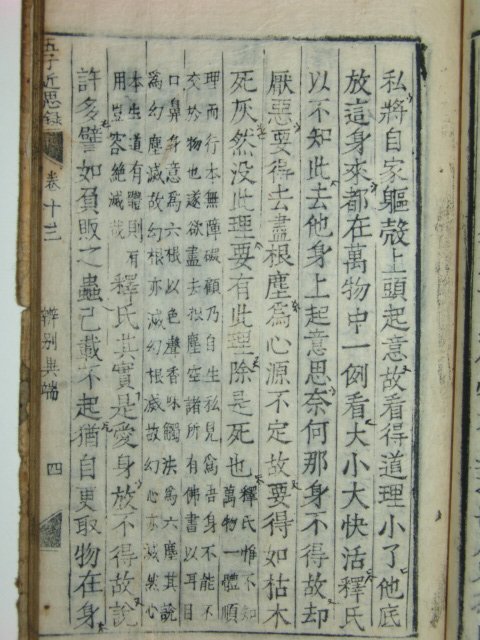 私將自家軀殼上頭起意故看得道理小了他底
放這身來都在萬物中一例看大小大快活釋氏
以不知此去他身上起意思奈何那身不得故却
厭惡要得去盡根塵爲心源不定故要得如枯木
死灰然没此理要有此理除是死也
釋氏惟不知
萬物一體順
理而行本無障礙顧乃自生私見爲吾身不能不
交於物也遂欲盡去根塵空諸所有佛書以耳目
口鼻身意爲六根以色聲香味觸法爲六塵其説
爲幻塵滅故幻根亦滅幻根滅故幻心亦滅然心
本生道有體則有
用豈容絶滅哉
釋氏其實是愛身放不得故説
許多譬如負販之蟲已載不起猶自更取物在身
五子近思錄
卷十三
辨别異端
四